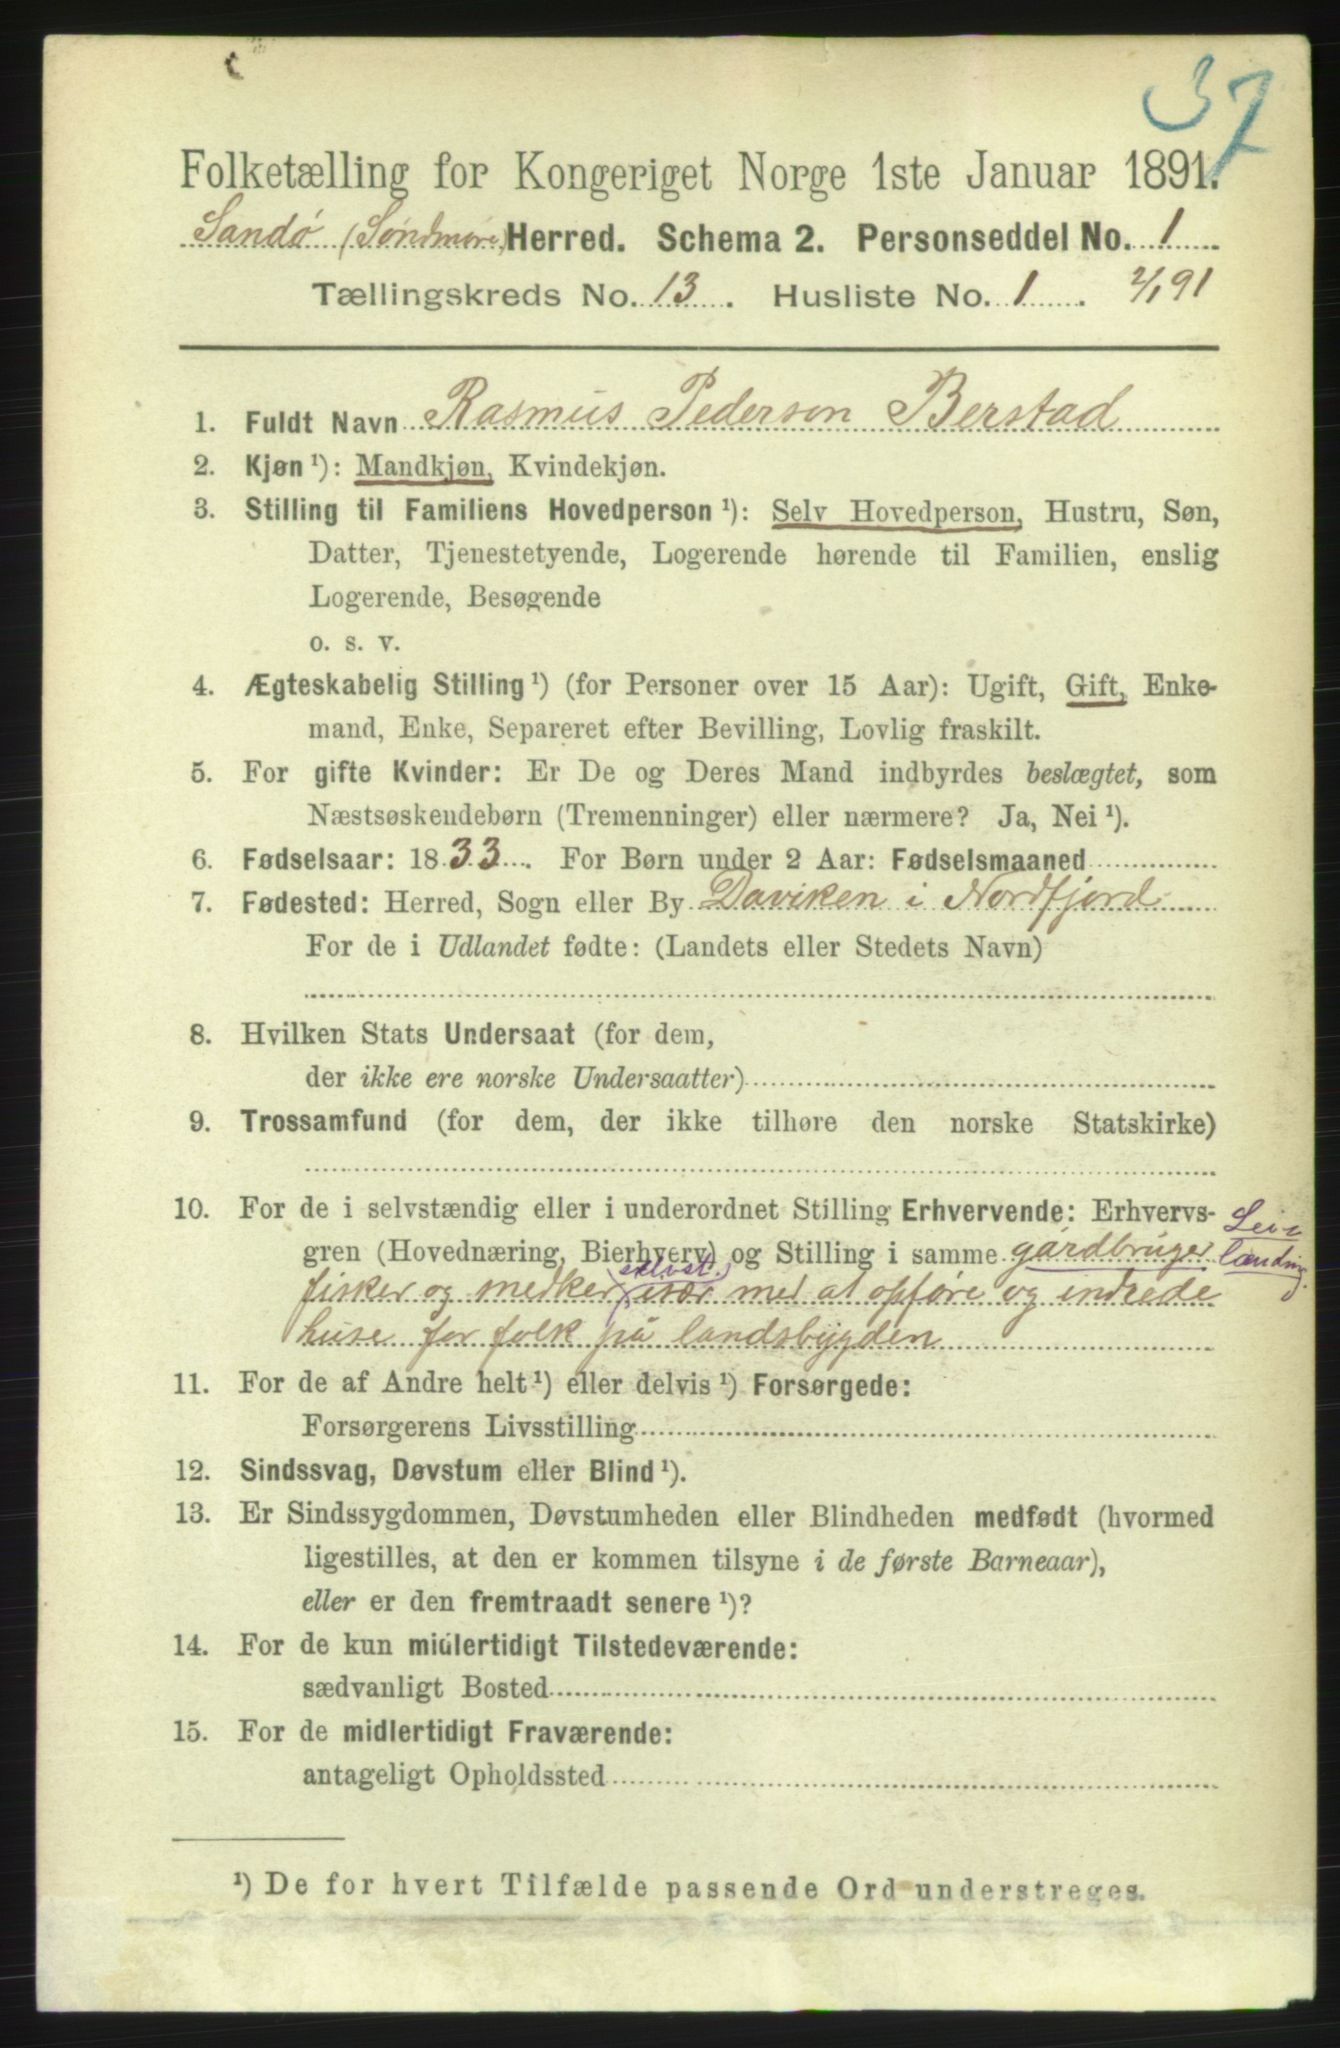 37
Folketælling for Kongeriget Norge 1ste Januar 1891.
Sandö (Söndmöre) Herred. Schema 2. Personseddel No. 1
Tællingskreds No. 13. Husliste No. 1. 2/1 91
1. Fuldt Navn Rasmus Pederson Berstad
2. Kjøn ¹): Mandkjøn, Kvindekjøn.
3. Stilling til Familiens Hovedperson ¹): Selv Hovedperson, Hustru, Søn,
Datter, Tjenestetyende, Logerende hørende til Familien, enslig
Logerende, Besøgende
o. s. v.
4. Ægteskabelig Stilling ¹) (for Personer over 15 Aar): Ugift, Gift, Enke-
mand, Enke, Separeret efter Bevilling, Lovlig fraskilt.
5. For gifte Kvinder: Er De og Deres Mand indbyrdes beslægtet, som
Næstsøskendebørn (Tremenninger) eller nærmere? Ja, Nei ¹).
6. Fødselsaar: 1833. For Børn under 2 Aar: Fødselsmaaned
7. Fødested: Herred, Sogn eller By Daviken i Nordfjord
For de i Udlandet fødte: (Landets eller Stedets Navn)
8. Hvilken Stats Undersaat (for dem,
der ikke ere norske Undersaatter)
9. Trossamfund (for dem, der ikke tilhøre den norske Statskirke)
10. For de i selvstændig eller i underordnet Stilling Erhvervende: Erhvervs-
gren (Hovednæring, Bierhverv) og Stilling i samme gårdbruger Lei-
lænding
selvst.
fisker og snedker, især med at opföre og indrede
huse for folk på landsbygden
11. For de af Andre helt ¹) eller delvis ¹) Forsørgede:
Forsørgerens Livsstilling
12. Sindssvag, Døvstum eller Blind ¹).
13. Er Sindssygdommen, Døvstumheden eller Blindheden medfødt (hvormed
ligestilles, at den er kommen tilsyne i de første Barneaar),
eller er den fremtraadt senere ¹)?
14. For de kun midlertidigt Tilstedeværende:
sædvanligt Bosted
15. For de midlertidigt Fraværende:
antageligt Opholdssted
¹) De for hvert Tilfælde passende Ord understreges.